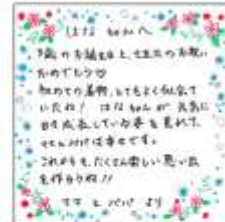 はな ちゃんへ
3歳のお誕生日と七五三のお祝い
おめでとう
初めての着物、とてもよく似合って
いたね！ はなちゃんが 元気に
日々成長している姿を見れて、
幸せです。
これからも、たくさん楽しい思い出
を作ろうね!!
ママ と パパ より